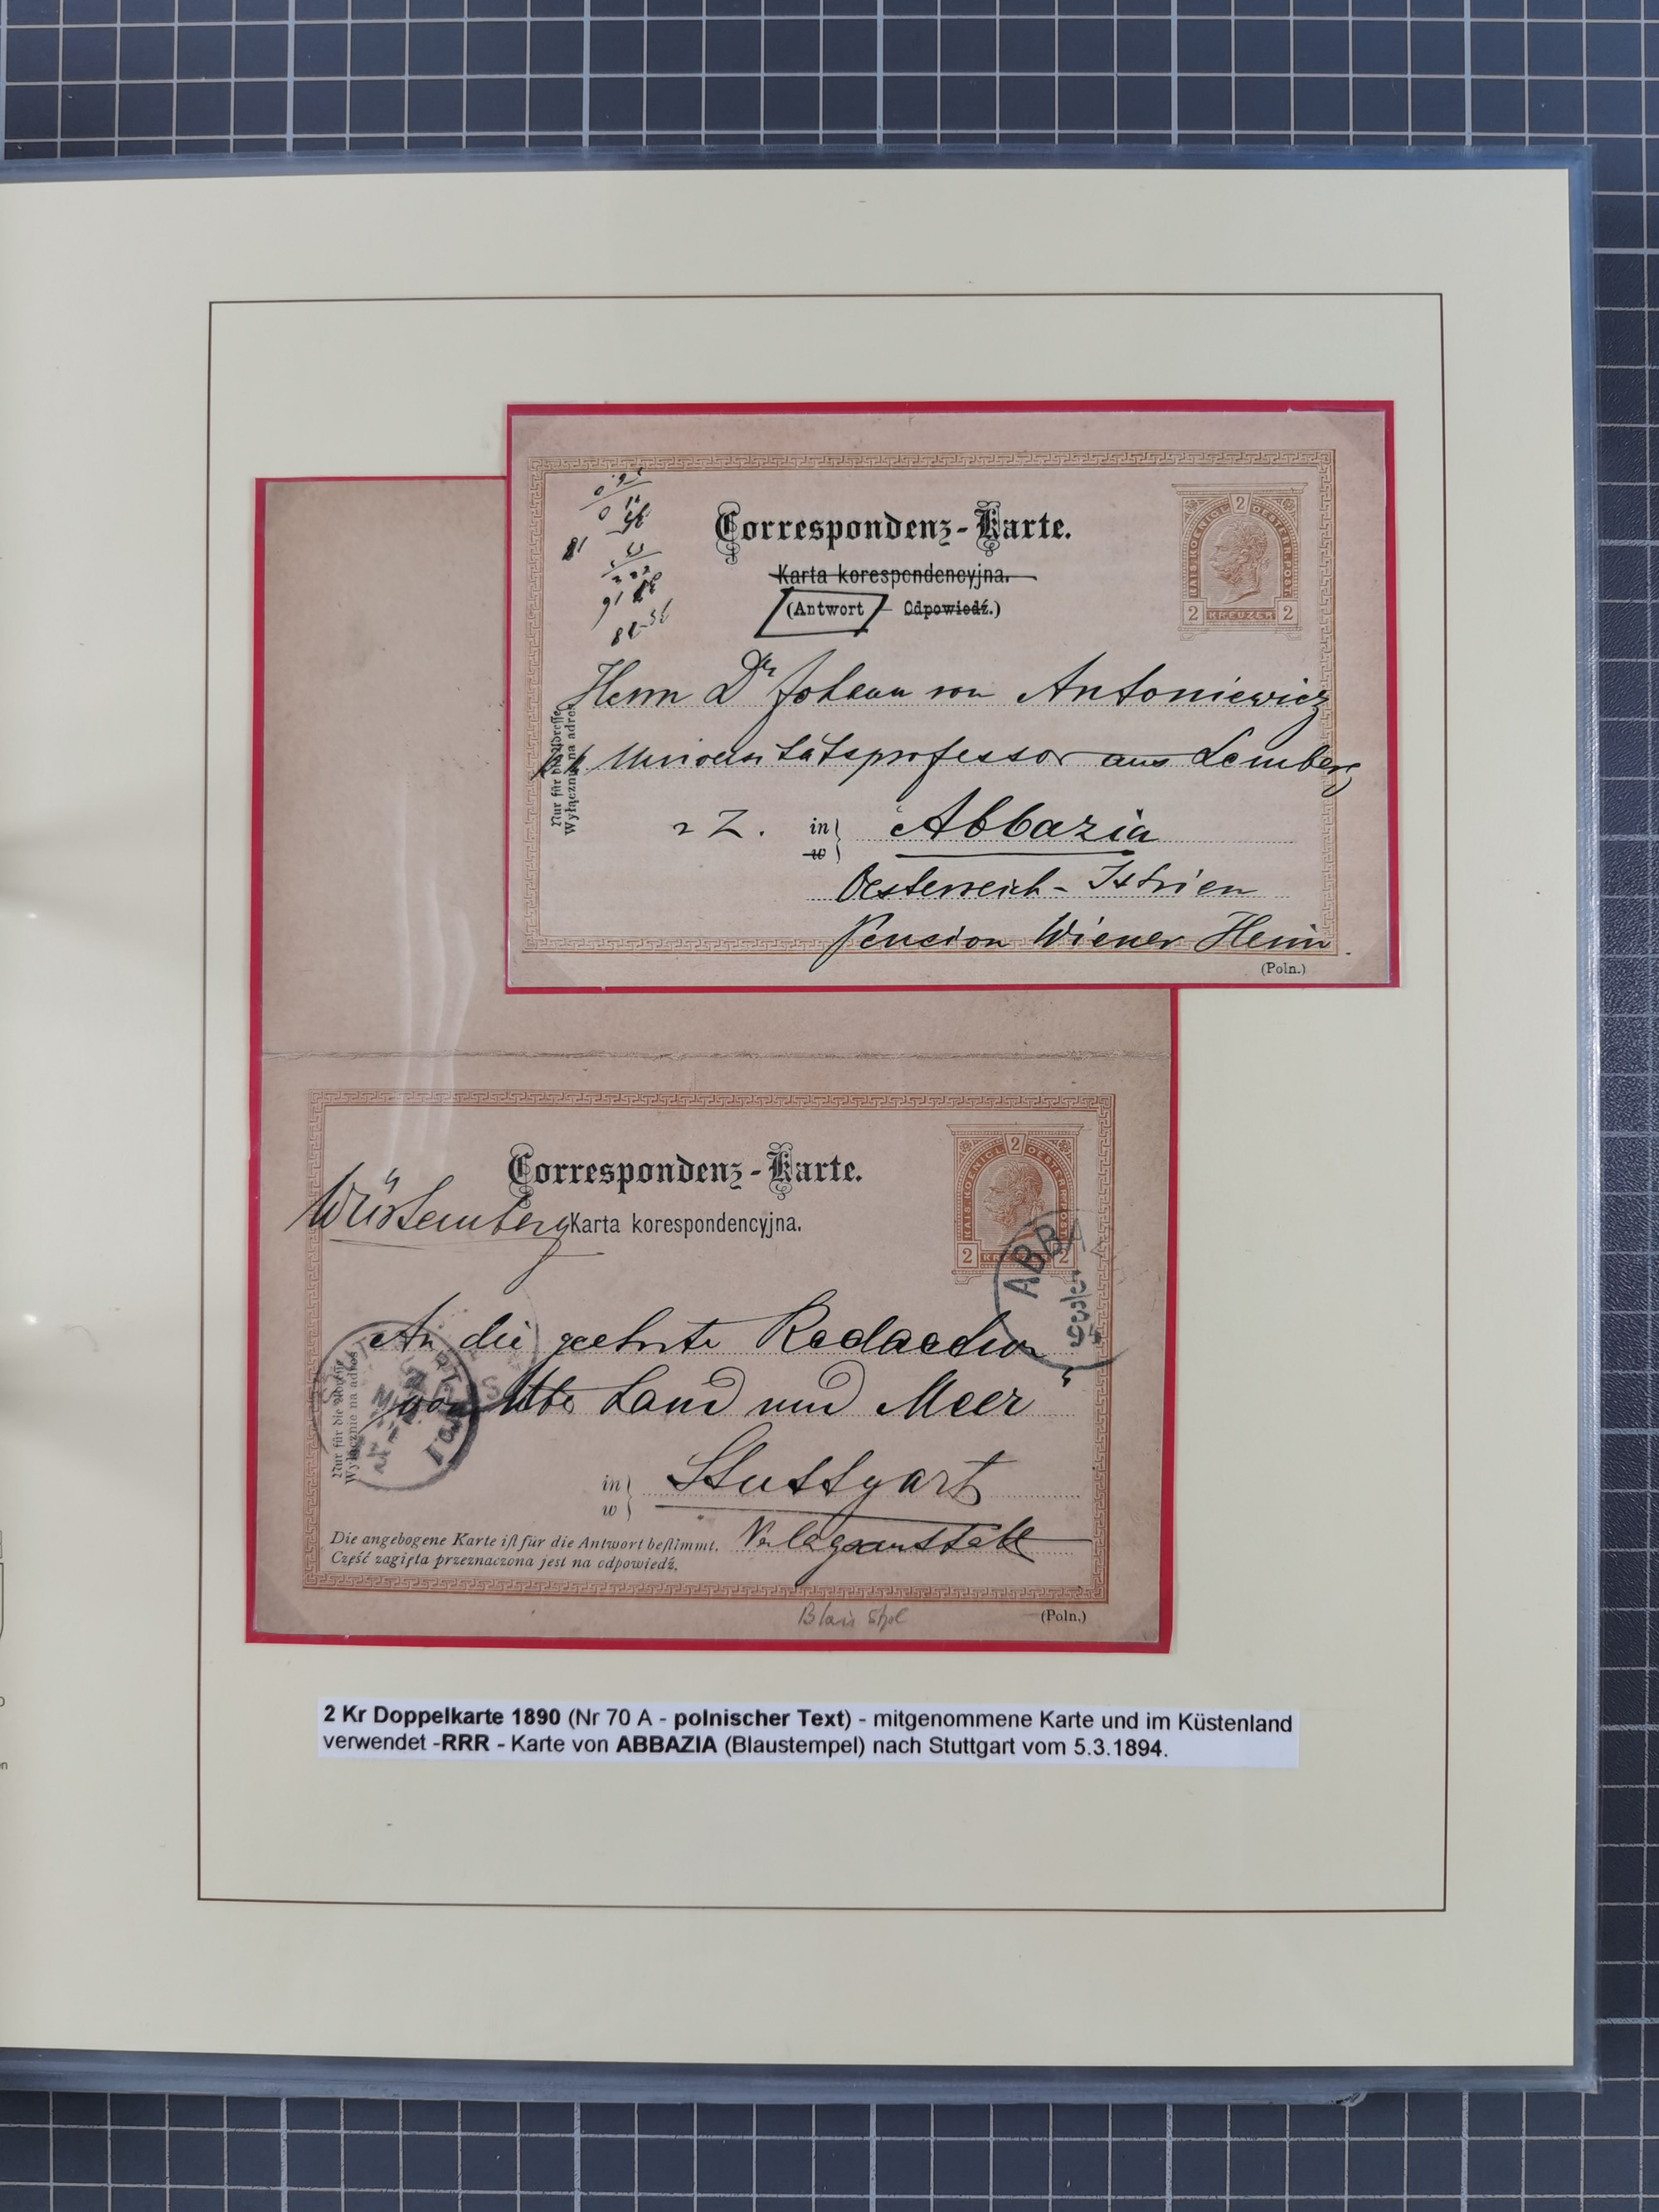 Correspondenz-Karte.
Karta korespondencyjna.
(Antwort – Odpowiedź.)
2
KAIS. KOENIGL. OESTERR. POST
2 KREUZER 2
Herrn Dr Johann von Antoniewicz
k k Universitätsprofessor aus Lemberg
Nur für die Adresse
Wyłącznie na adres
z Z. in Abbazia
w
Oesterreich - Istrien
Pension Wiener Heim.
(Poln.)
Correspondenz-Karte.
Württemberg
Karta korespondencyjna.
2
KAIS. KOENIGL. OESTERR.
2 2
ABBA
An die geehrte Redaction
von Über Land und Meer"
Nur für die Adresse
Wyłącznie na adres
in Stuttgart
w
Verlagsanstalt
Die angebogene Karte iſt für die Antwort beſtimmt.
Część zagięta przeznaczona jest na odpowiedź.
(Poln.)
2 Kr Doppelkarte 1890 (Nr 70 A - polnischer Text) - mitgenommene Karte und im Küstenland
verwendet -RRR - Karte von ABBAZIA (Blaustempel) nach Stuttgart vom 5.3.1894.